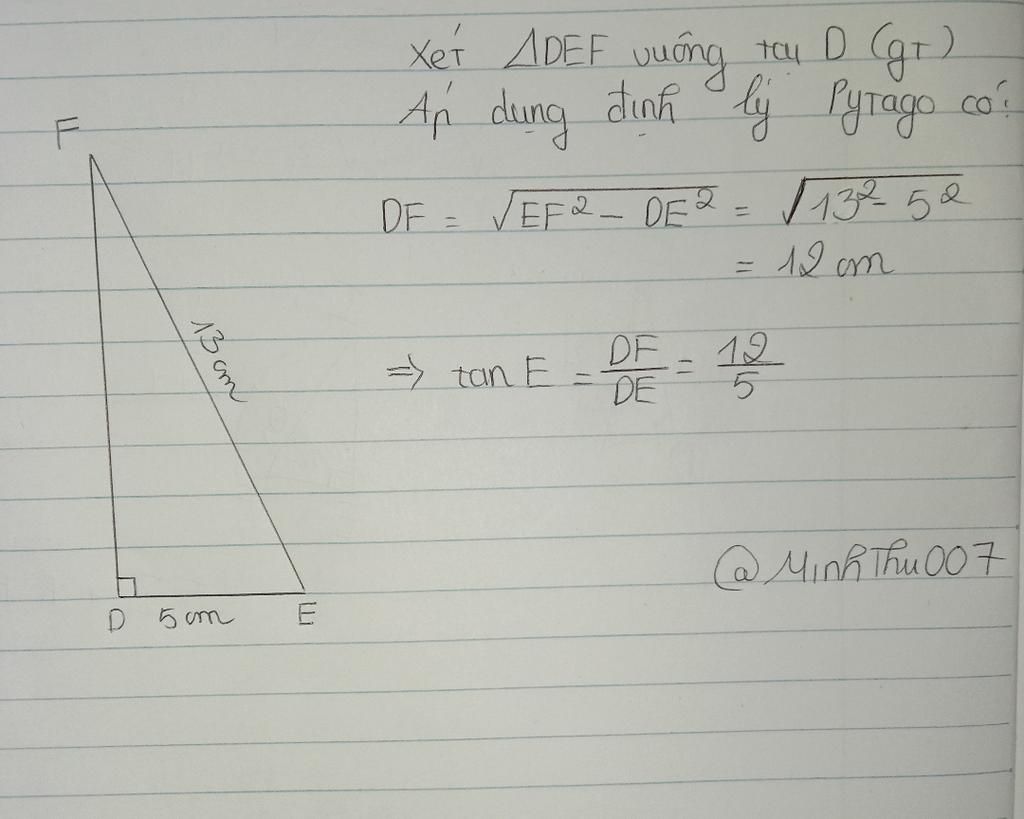 Xét ΔDEF vuông tại D (gt)
Áp dụng định lý Pytago có:
F
DF = √(EF² - DE²) = √(13² - 5²)
= 12 cm
13 cm
=> tan E = DF/DE = 12/5
@MinhThu007
D 5 cm E